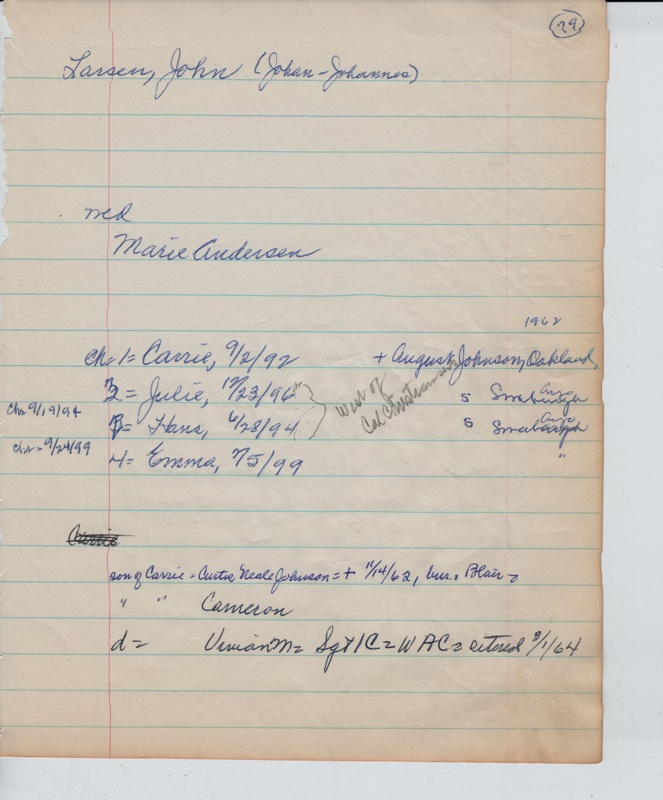 29
Larsen, John (Johan-Johannes)
md
Marie Andersen
1962
ch= 1= Carrie, 9/2/92 + August Johnson, Oakland
2= Julie, 12/23/96 s
ch= 9/19/94 3= Hans, 6/28/94 s
West of
Cal Christiansen
ch= 9/24/99 4= Emma, 7/5/99 "
Carrie
son of Carrie = Curtis Neale Johnson = + 11/14/62, bur. Blair =
" " Cameron
d= Vivian M= Sgt 1C = WAC = retired 3/1/64